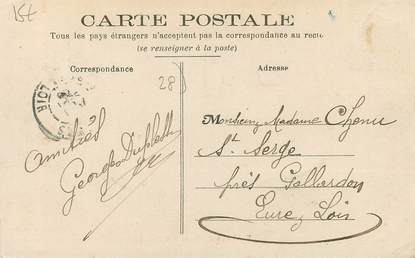 15t
CARTE POSTALE
Tous les pays étrangers n'acceptent pas la correspondance au recto
(se renseigner à la poste)
Correspondance
Adresse
28
LOIR
Monsieur, Madame Chenu
St. Serge
près Gallardon
Eure & Loir
amitiés
Georges